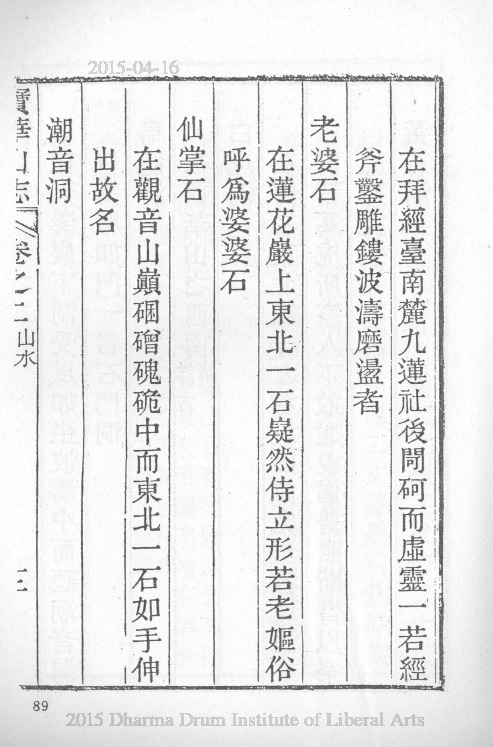 2015-04-16
在拜經臺南麓九蓮社後閜砢而虛靈一若經
斧鑿雕鏤波濤磨盪者
老婆石
在蓮花巖上東北一石嶷然侍立形若老嫗俗
呼爲婆婆石
仙掌石
在觀音山巔硱磳磈硊中而東北一石如手伸
出故名
潮音洞
寶華山志
卷之二
山水
三
89
2015 Dharma Drum Institute of Liberal Arts